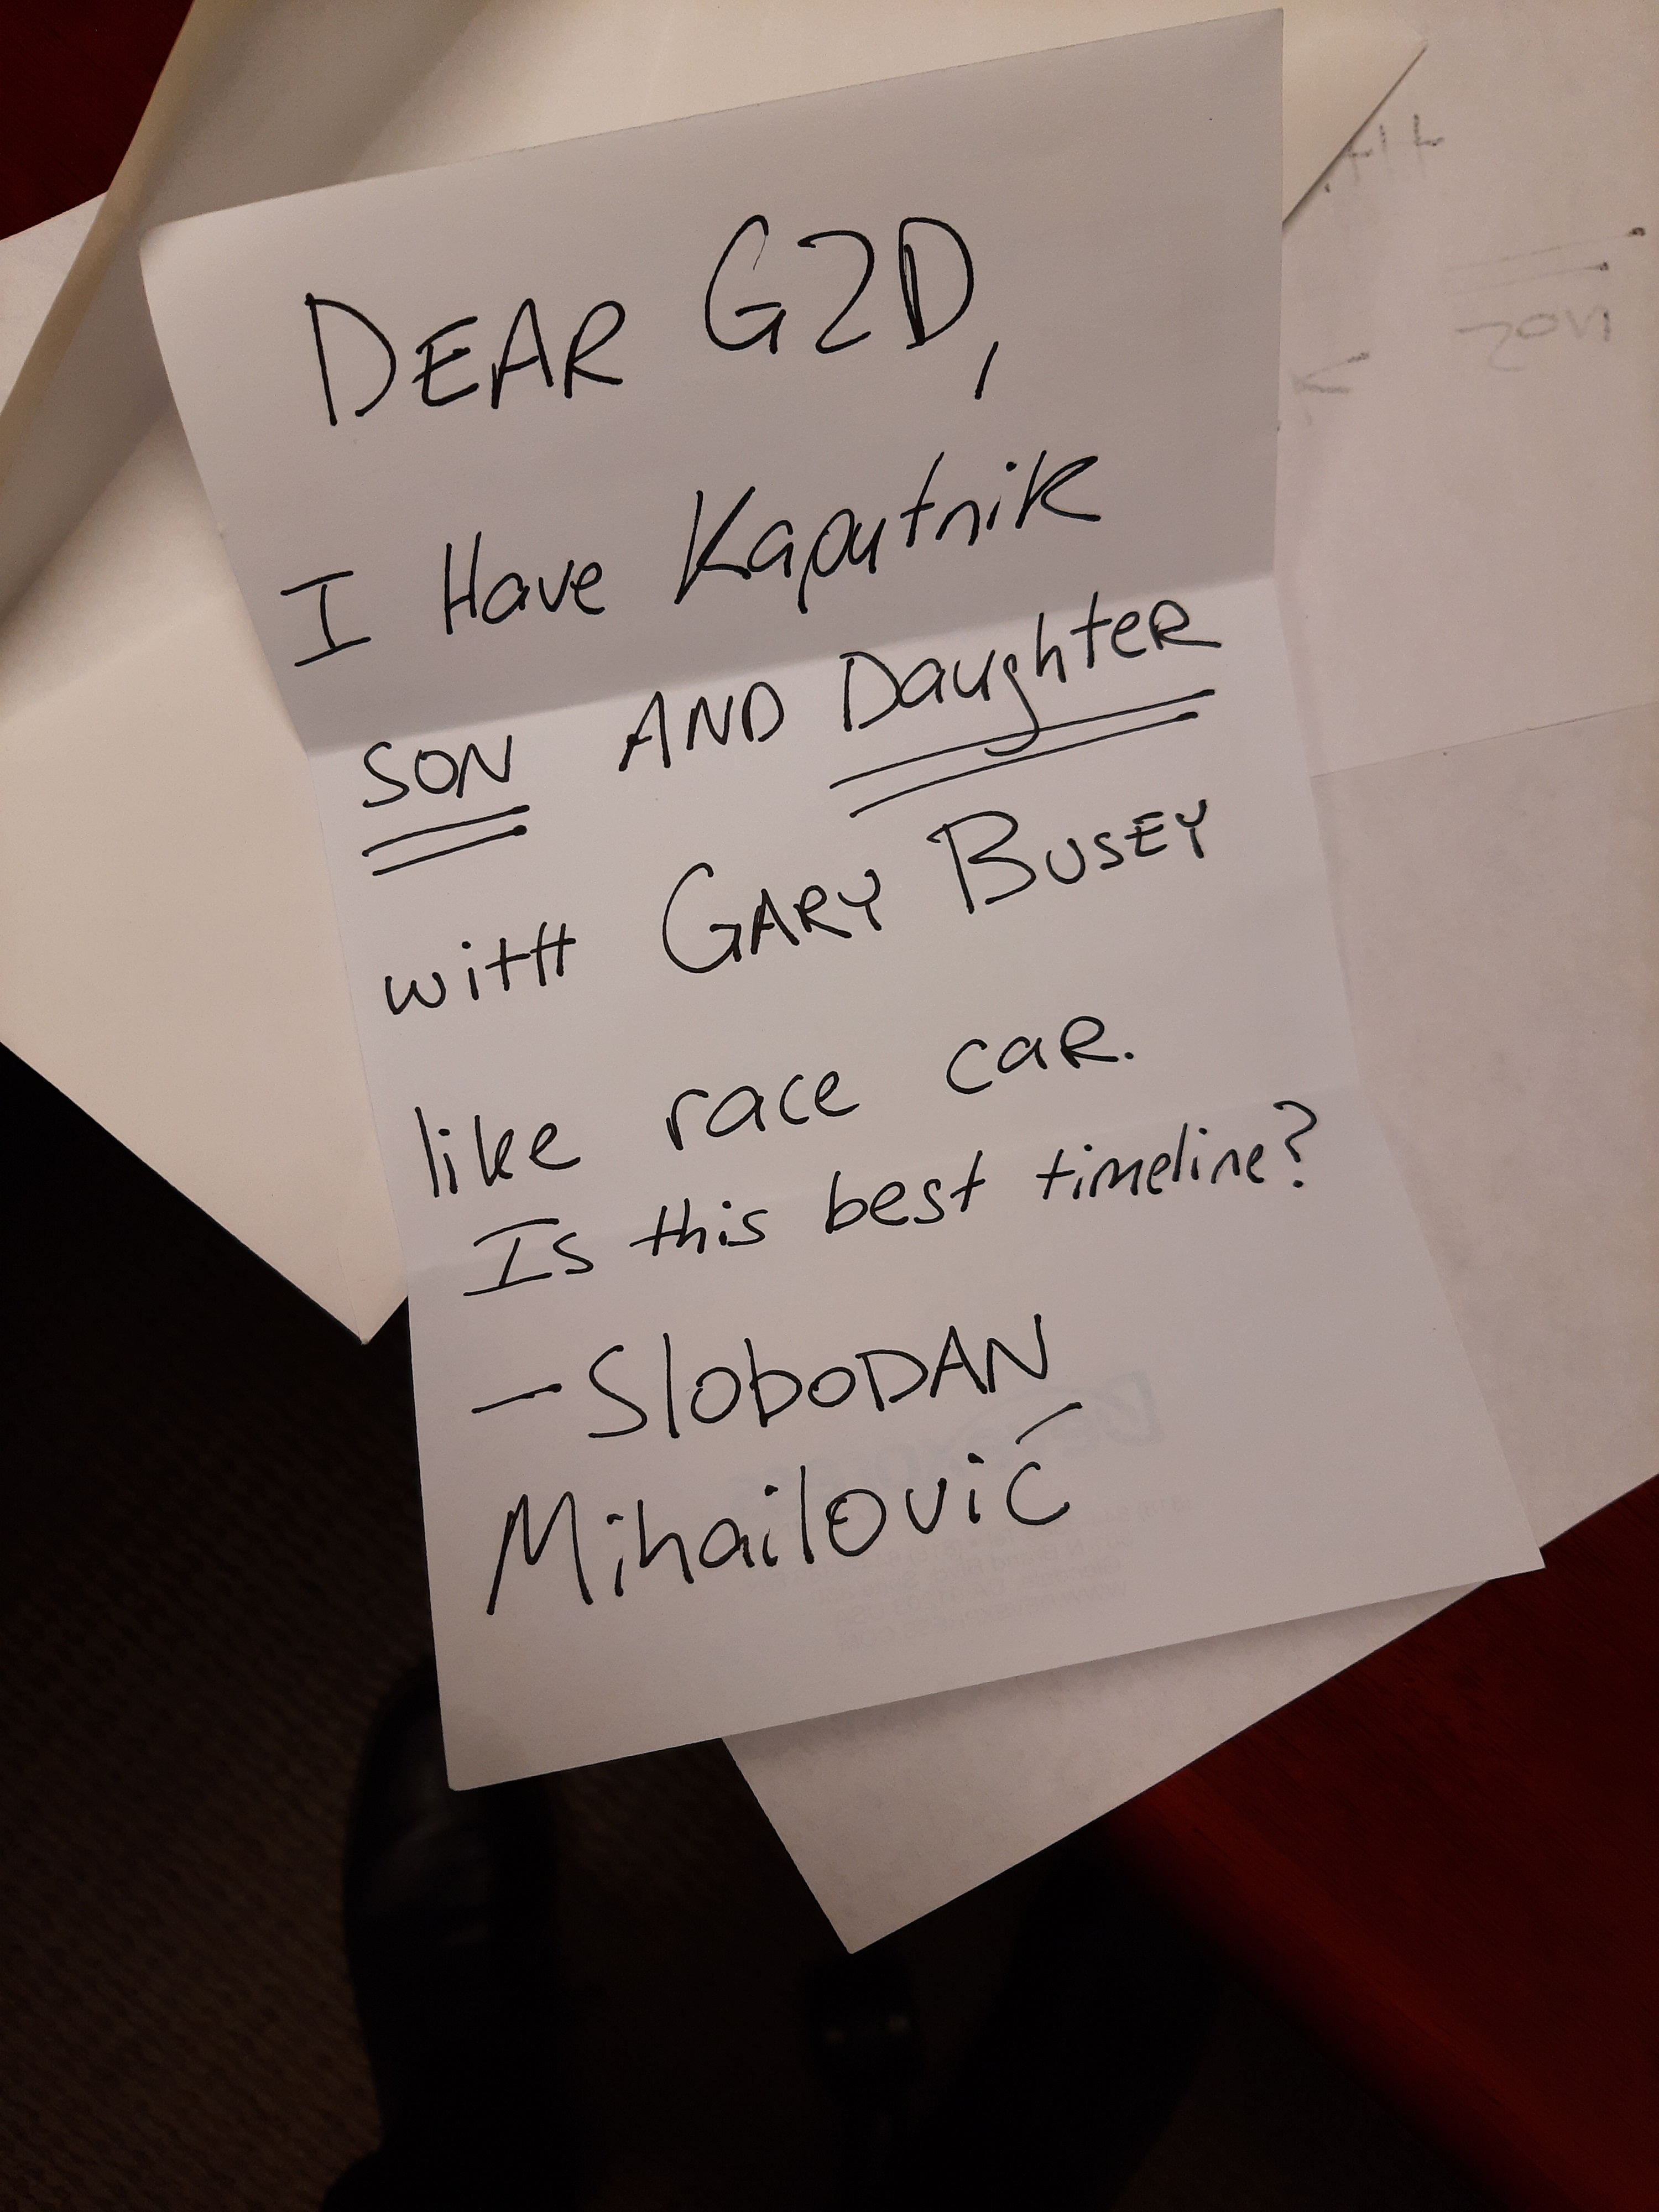 DEAR G2D,
I Have Kaputnik
SON AND DaughteR
witH GARY BUSEY
like race caR.
Is this best timeline?
—SloboDAN
Mihailović